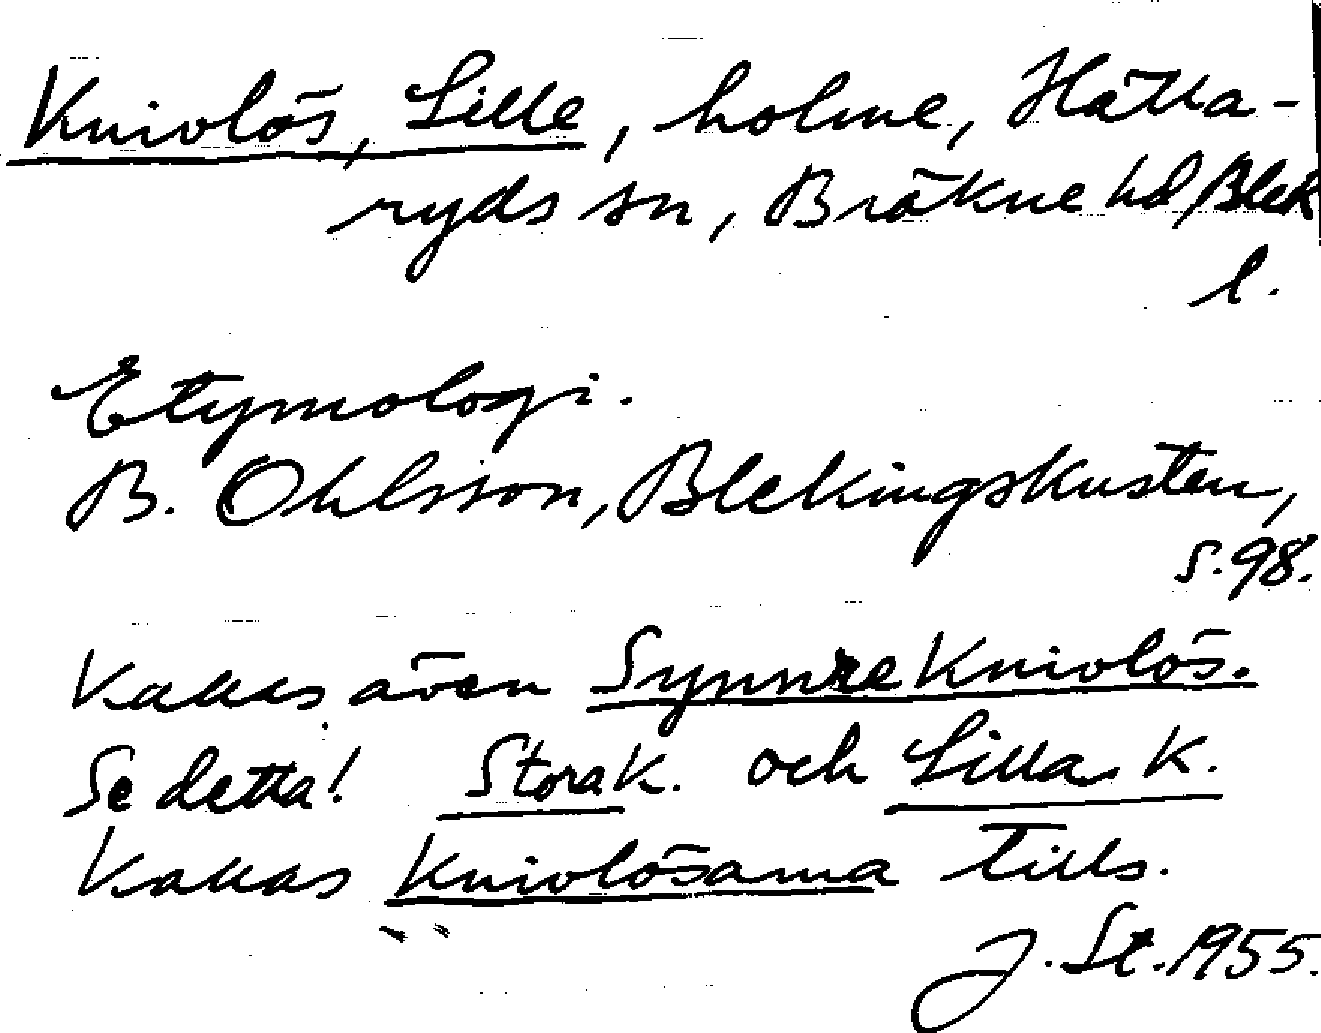 Kniolös, Lille, holme, Hälla-
ryds sn, Bräkne hd, Blek
l.
Etymologi.
B. Ohlsson, Blekingskusten,
s. 98.
Kallas även Synnre Kniolös.
Se detta! Stora K. och Lilla K.
Kallas Kniolösarna tills.
J. St. 1955.